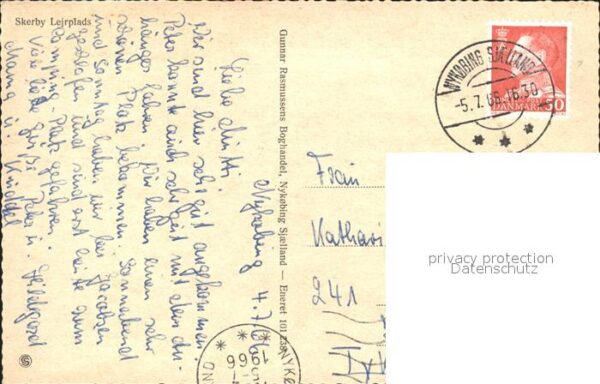 Skerby Lejrplads
Nykøbing 4.7.66
Liebe Mutti.
Wir sind hier sehr gut angekommen.
Peter konnte auch sehr gut mit dem An-
hänger fahren. Wir haben einen sehr
schönen Platz bekommen. Sonnabend
und Sonntag haben wir bei Jacobsen
geschlafen und sind erst heute zum
Camping-Platz gefahren.
Viele liebe Grüße Peter u. Hildegard
Mama u.
Gunnar Rasmussens Boghandel, Nykøbing Sjælland — Eneret 101238
NYKØBING SJÆLLAND
-5.7.66.16.30
DANMARK 50
Frau
241
privacy protection
Datenschutz